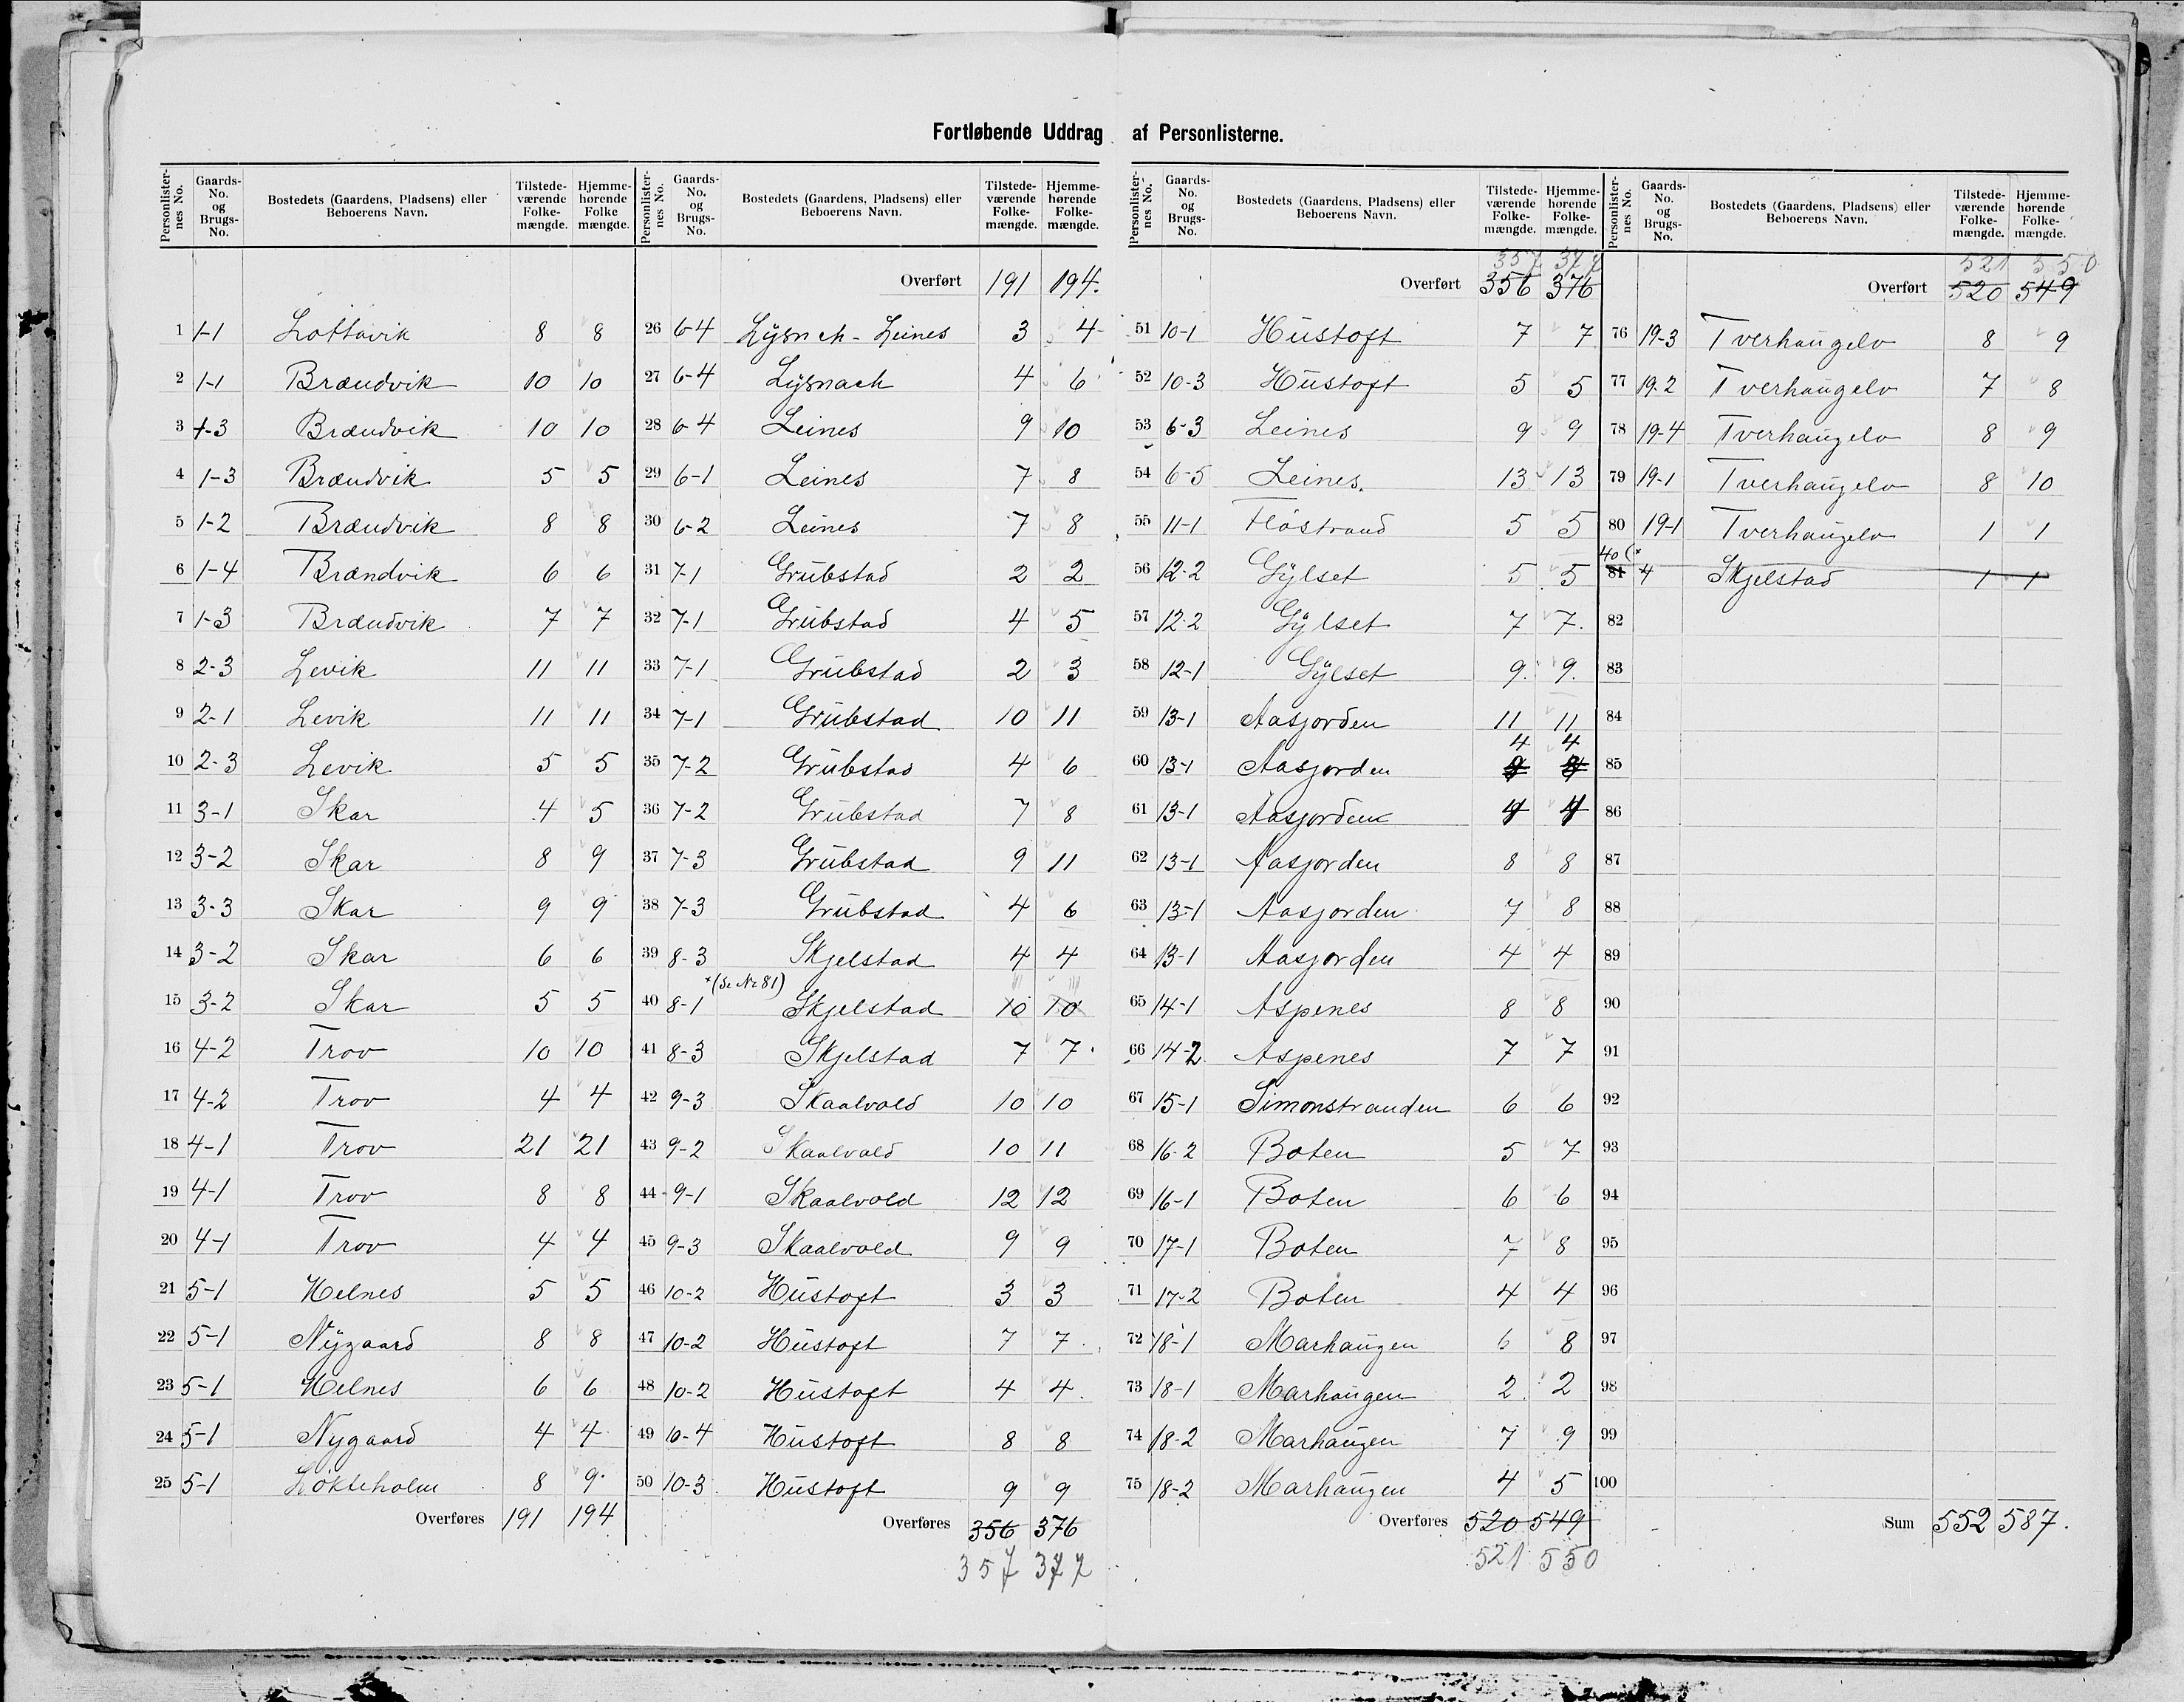 Fortløbende Uddrag af Personlisterne.
Personlisternes No. Gaards-No. og Brugs-No. Bostedets (Gaardens, Pladsens) eller Beboerens Navn. Tilstedeværende Folkemængde. Hjemmehørende Folkemængde.
1 1-1 Lottavik 8 8
2 1-1 Brændvik 10 10
3 1-3 Brændvik 10 10
4 1-3 Brændvik 5 5
5 1-2 Brændvik 8 8
6 1-4 Brændvik 6 6
7 1-3 Brændvik 7 7
8 2-3 Levik 11 11
9 2-1 Levik 11 11
10 2-3 Levik 5 5
11 3-1 Skar 4 5
12 3-2 Skar 8 9
13 3-3 Skar 9 9
14 3-2 Skar 6 6
15 3-2 Skar 5 5
16 4-2 Trov 10 10
17 4-2 Trov 4 4
18 4-1 Trov 21 21
19 4-1 Trov 8 8
20 4-1 Trov 4 4
21 5-1 Helnes 5 5
22 5-1 Nygaard 8 8
23 5-1 Helnes 6 6
24 5-1 Nygaard 4 4
25 5-1 Lökteholm 8 9
Overføres 191 194
Personlisternes No. Gaards-No. og Brugs-No. Bostedets (Gaardens, Pladsens) eller Beboerens Navn. Tilstedeværende Folkemængde. Hjemmehørende Folkemængde.
Overført 191 194.
26 6-4 Leines 3 4
27 6-4 4 6
28 6-4 Leines 9 10
29 6-1 Leines 7 8
30 6-2 Leines 7 8
31 7-1 Grubstad 2 2
32 7-1 Grubstad 4 5
33 7-1 Grubstad 2 3
34 7-1 Grubstad 10 11
35 7-2 Grubstad 4 6
36 7-2 Grubstad 7 8
37 7-3 Grubstad 9 11
38 7-3 Grubstad 4 6
39 8-3 Skjelstad 4 4
*(Se Nr 81)
40 8-1 Skjelstad 10 10
41 8-3 Skjelstad 7 7
42 9-3 Skaalvold 10 10
43 9-2 Skaalvold 10 11
44 9-1 Skaalvold 12 12
45 9-3 Skaalvold 9 9
46 10-2 Hustoft 3 3
47 10-2 Hustoft 7 7
48 10-2 Hustoft 4 4
49 10-4 Hustoft 8 8
50 10-3 Hustoft 9 9
Overføres 356 376
357 377
Personlisternes No. Gaards-No. og Brugs-No. Bostedets (Gaardens, Pladsens) eller Beboerens Navn. Tilstedeværende Folkemængde. Hjemmehørende Folkemængde.
357 377
Overført 356 376
51 10-1 Hustoft 7 7
52 10-3 Hustoft 5 5
53 6-3 Leines 9 9
54 6-5 Leines. 13 13
55 11-1 Flöstrand 5 5
56 12-2 Gylset 5 5
57 12-2 Gylset 7 7.
58 12-1 Gylset 9. 9.
59 13-1 Aasjorden 11 11
4 4
60 13-1 Aasjorden
61 13-1 Aasjorden
62 13-1 Aasjorden 8 8
63 13-1 Aasjorden 7 8
64 13-1 Aasjorden 4 4
65 14-1 Aspenes 8 8
66 14-2 Aspenes 7 7
67 15-1 Simonstranden 6 6
68 16-2 Boten 5 7
69 16-1 Boten 6 6
70 17-1 Boten 7 8
71 17-2 Boten 4 4
72 18-1 Marhaugen 6 8
73 18-1 Marhaugen 2 2
74 18-2 Marhaugen 7 9
75 18-2 Marhaugen 4 5
Overføres 520 549
521 550
Personlisternes No. Gaards-No. og Brugs-No. Bostedets (Gaardens, Pladsens) eller Beboerens Navn. Tilstedeværende Folkemængde. Hjemmehørende Folkemængde.
521 550
Overført 520 549
76 19-3 Tverhaugelv 8 9
77 19-2 Tverhaugelv 7 8
78 19-4 Tverhaugelv 8 9
79 19-1 Tverhaugelv 8 10
80 19-1 Tverhaugelv 1 1
40 (*
81 4 Skjelstad 1 1
82
83
84
85
86
87
88
89
90
91
92
93
94
95
96
97
98
99
100
Sum 552 587.